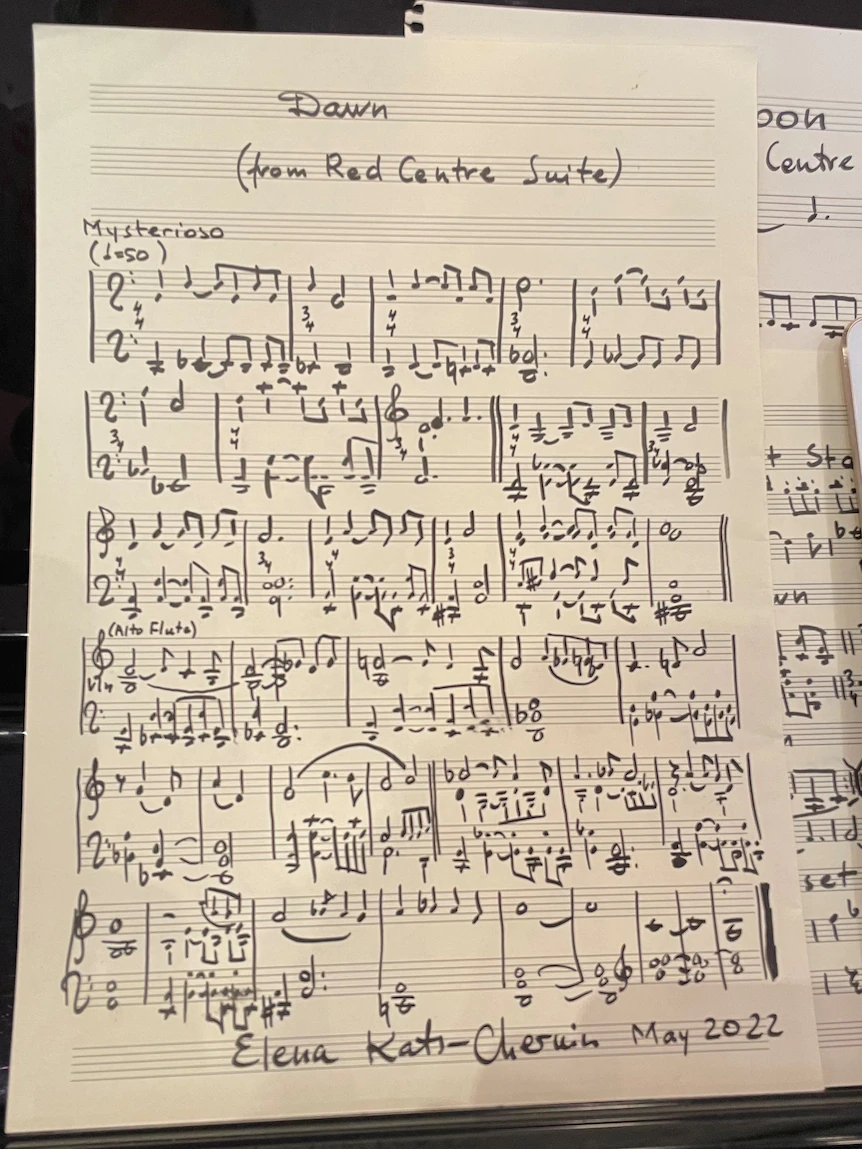 Dawn
(from Red Centre Suite)
Mysterioso
(♩=50)
(Alto Flute)
Vln
Elena Kats-Chernin May 2022
Centre
set